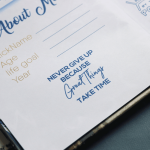 About M
Nickname
Age
life goal
Year
NEVER GIVE UP
BECAUSE
Great Things
TAKE TIME